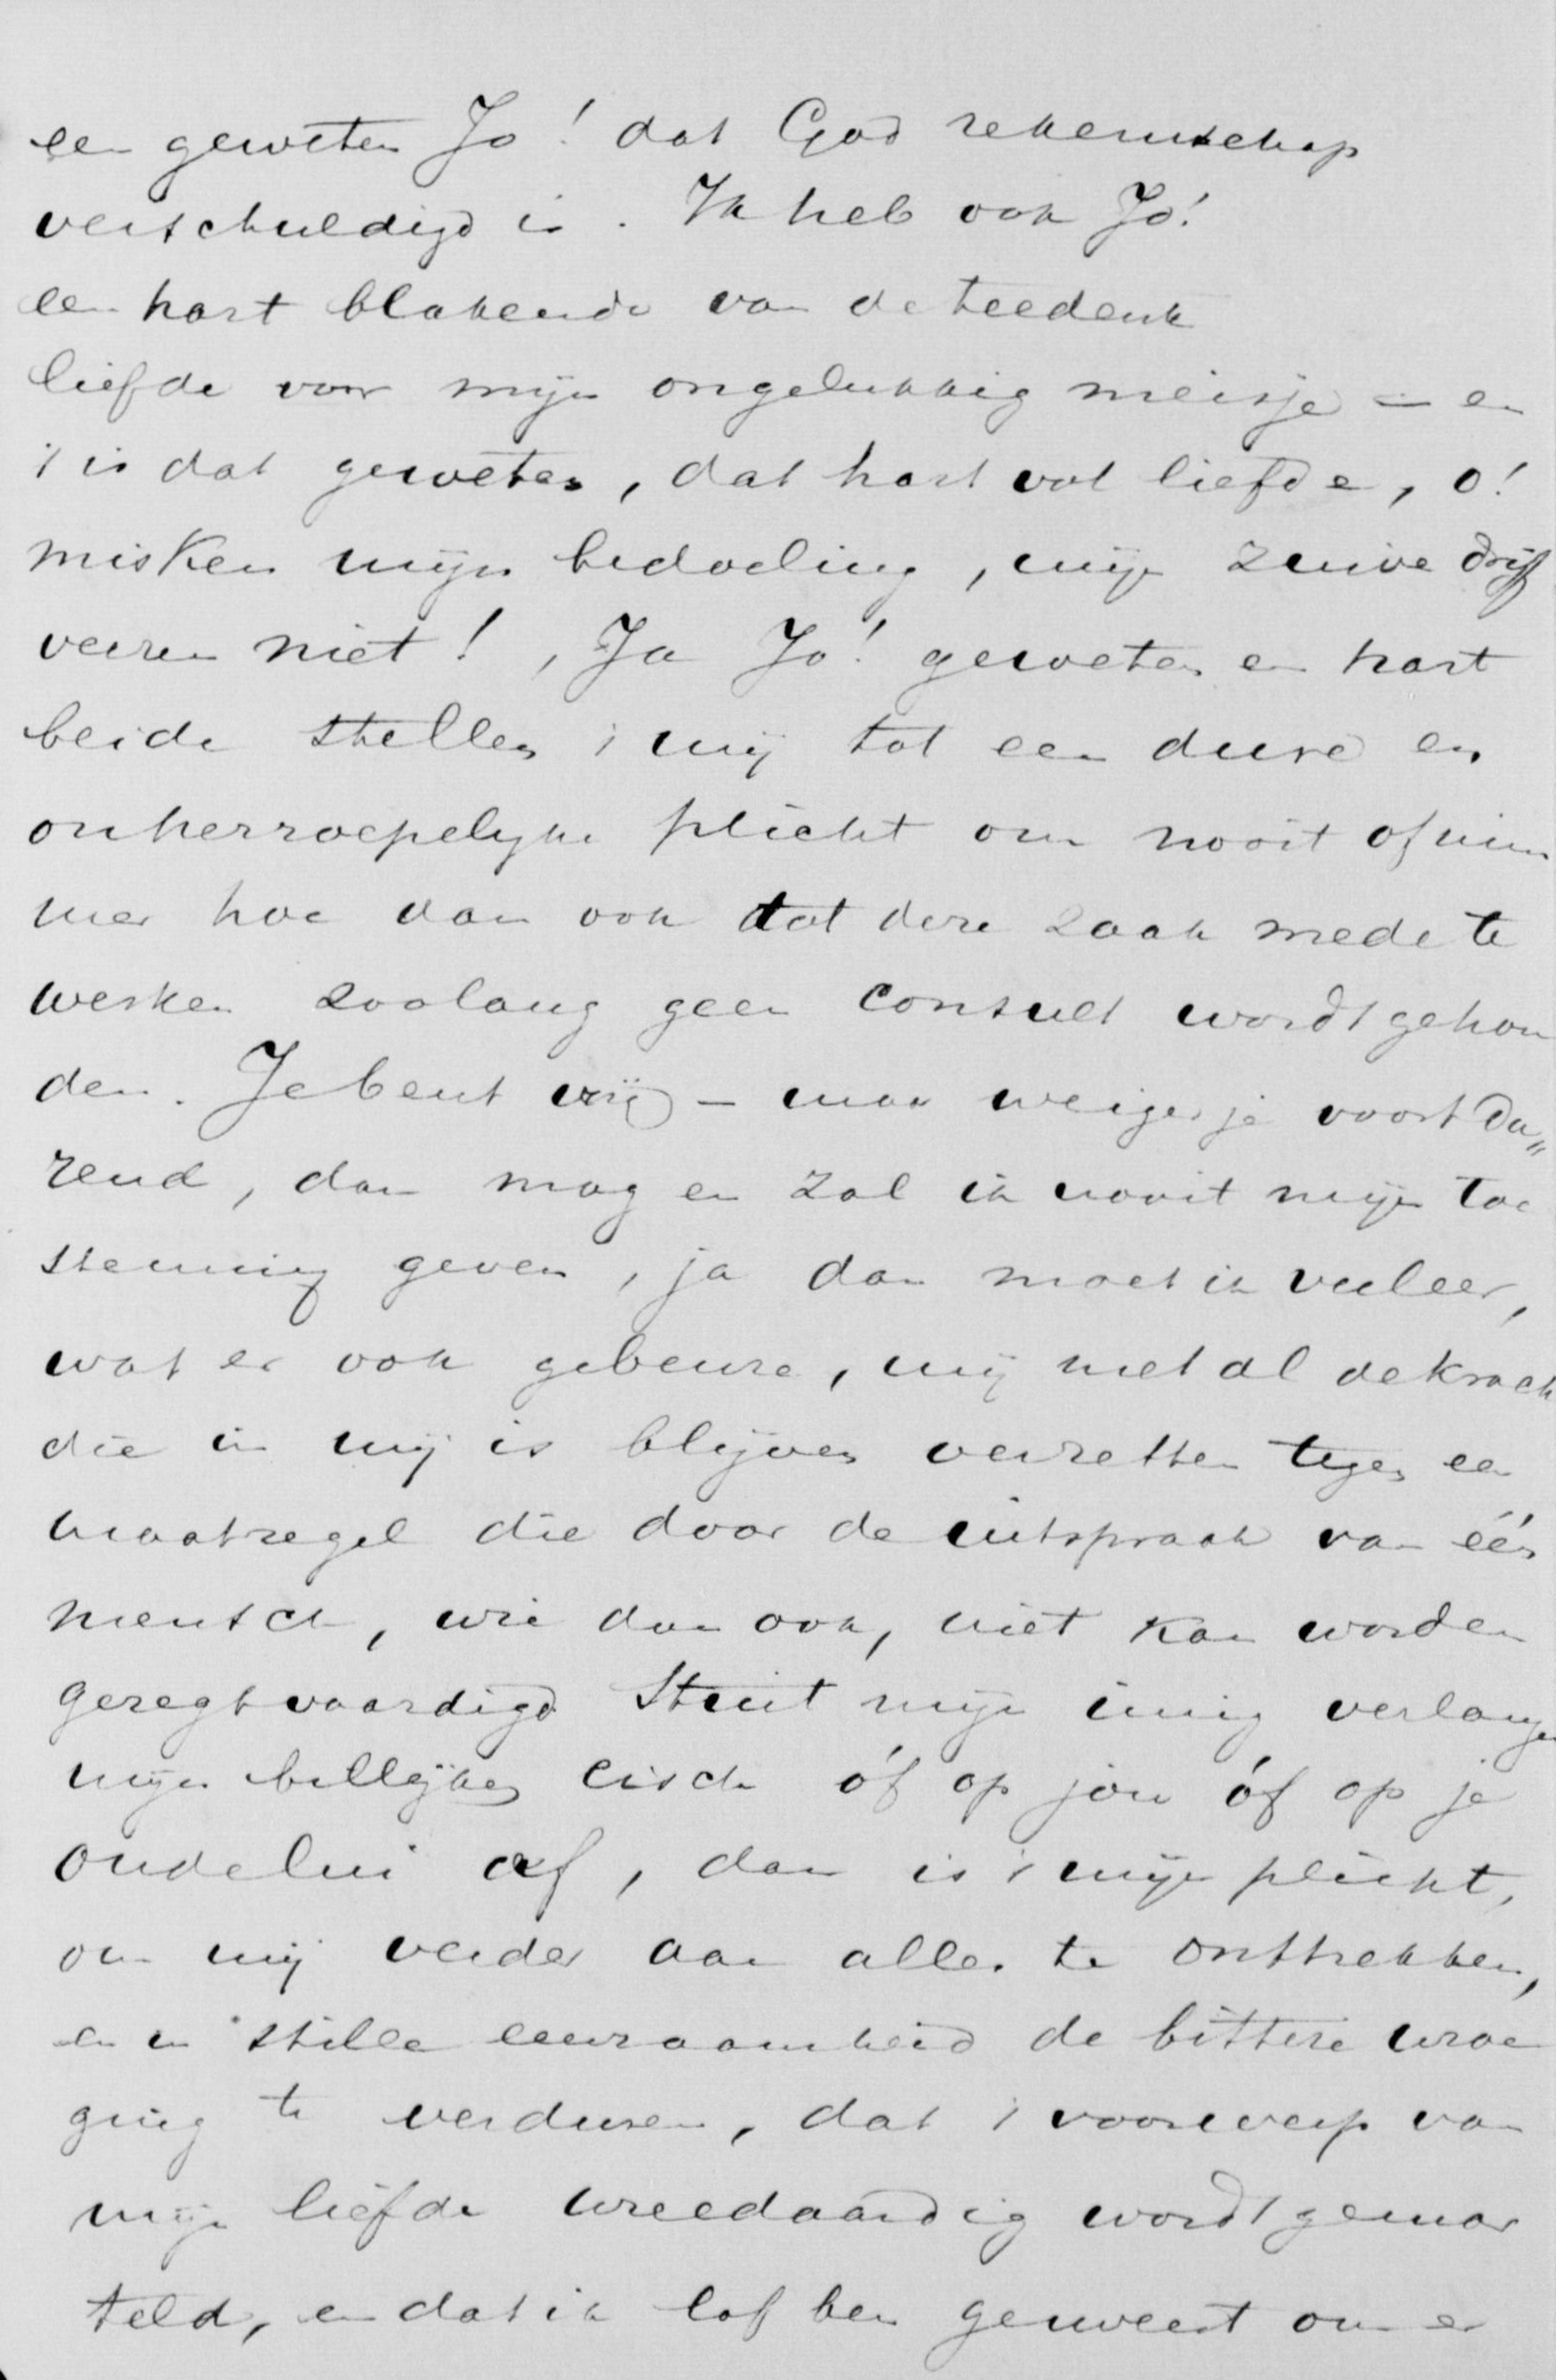 een geweten Jo! dat God rekenschap
verschuldigd is. Ik heb ook Jo!
een hart blakende van de teederste
liefde voor mijn ongelukkig meisje - en
't is dat geweten, dat hart vol liefde, o!
misken mijn bedoeling, mijn zuivre drijf
veeren niet!, Ja Jo! geweten en hart
beide stellen 't mij tot een dure en
onherroepelijke plicht om nooit of nim
mer hoe dan ook tot deze zaak mede te
werken zoolang geen consult wordt gehou
den. Je bent vrij - maar weiger je voortdu„
rend, dan mag en zal ik nooit mijn toe
stemming geven, ja dan moet ik veeleer,
wat er ook gebeure, mij met al de kracht
die in mij is blijven verzetten tegen een
maatregel die door de uitspraak van één
mensch, wie dan ook, niet kan worden
geregtvaardigd Stuit mijn innig verlangen
mijn billijken eisch óf op jou óf op je
oudelui af, dan is 't mijn plicht,
om mij verder aan alles te onttrekken,
en in stille eenzaamheid de bittere wroe
ging te verduren, dat 't voorwerp van
mijn liefde wreedaardig wordt gemar
teld, en dat ik laf ben geweest om er